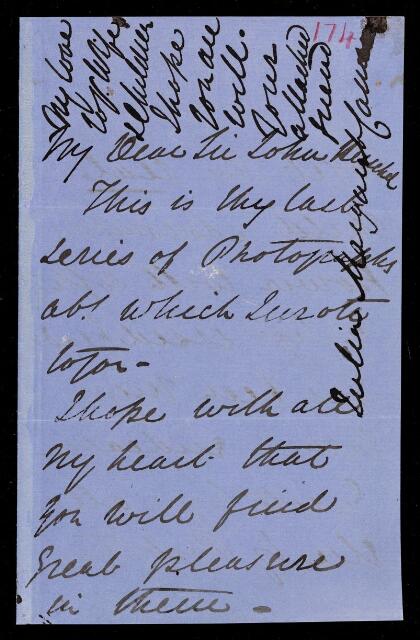 174
My Dear Sir John Herschel
This is my last
series of Photographs
abt which I wrote
to you -
I hope with all
my heart that
you will find
great pleasure
in them -
My love
to yr Wife
& Children
I hope
you are
well.
Your
attached
friend
Julia Margaret Cameron